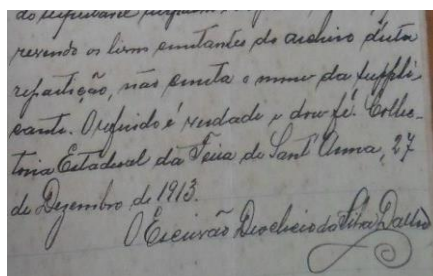 revendo os livros constantes do archivo desta
repartição, não consta o nome da suppli-
cante. O referido é verdade e dou fé. Colle-
toria Estadoal da Feira de Sant'Anna, 27
de Dezembro de 1913.
O Escrivão Dioclecio da Silva Daltro